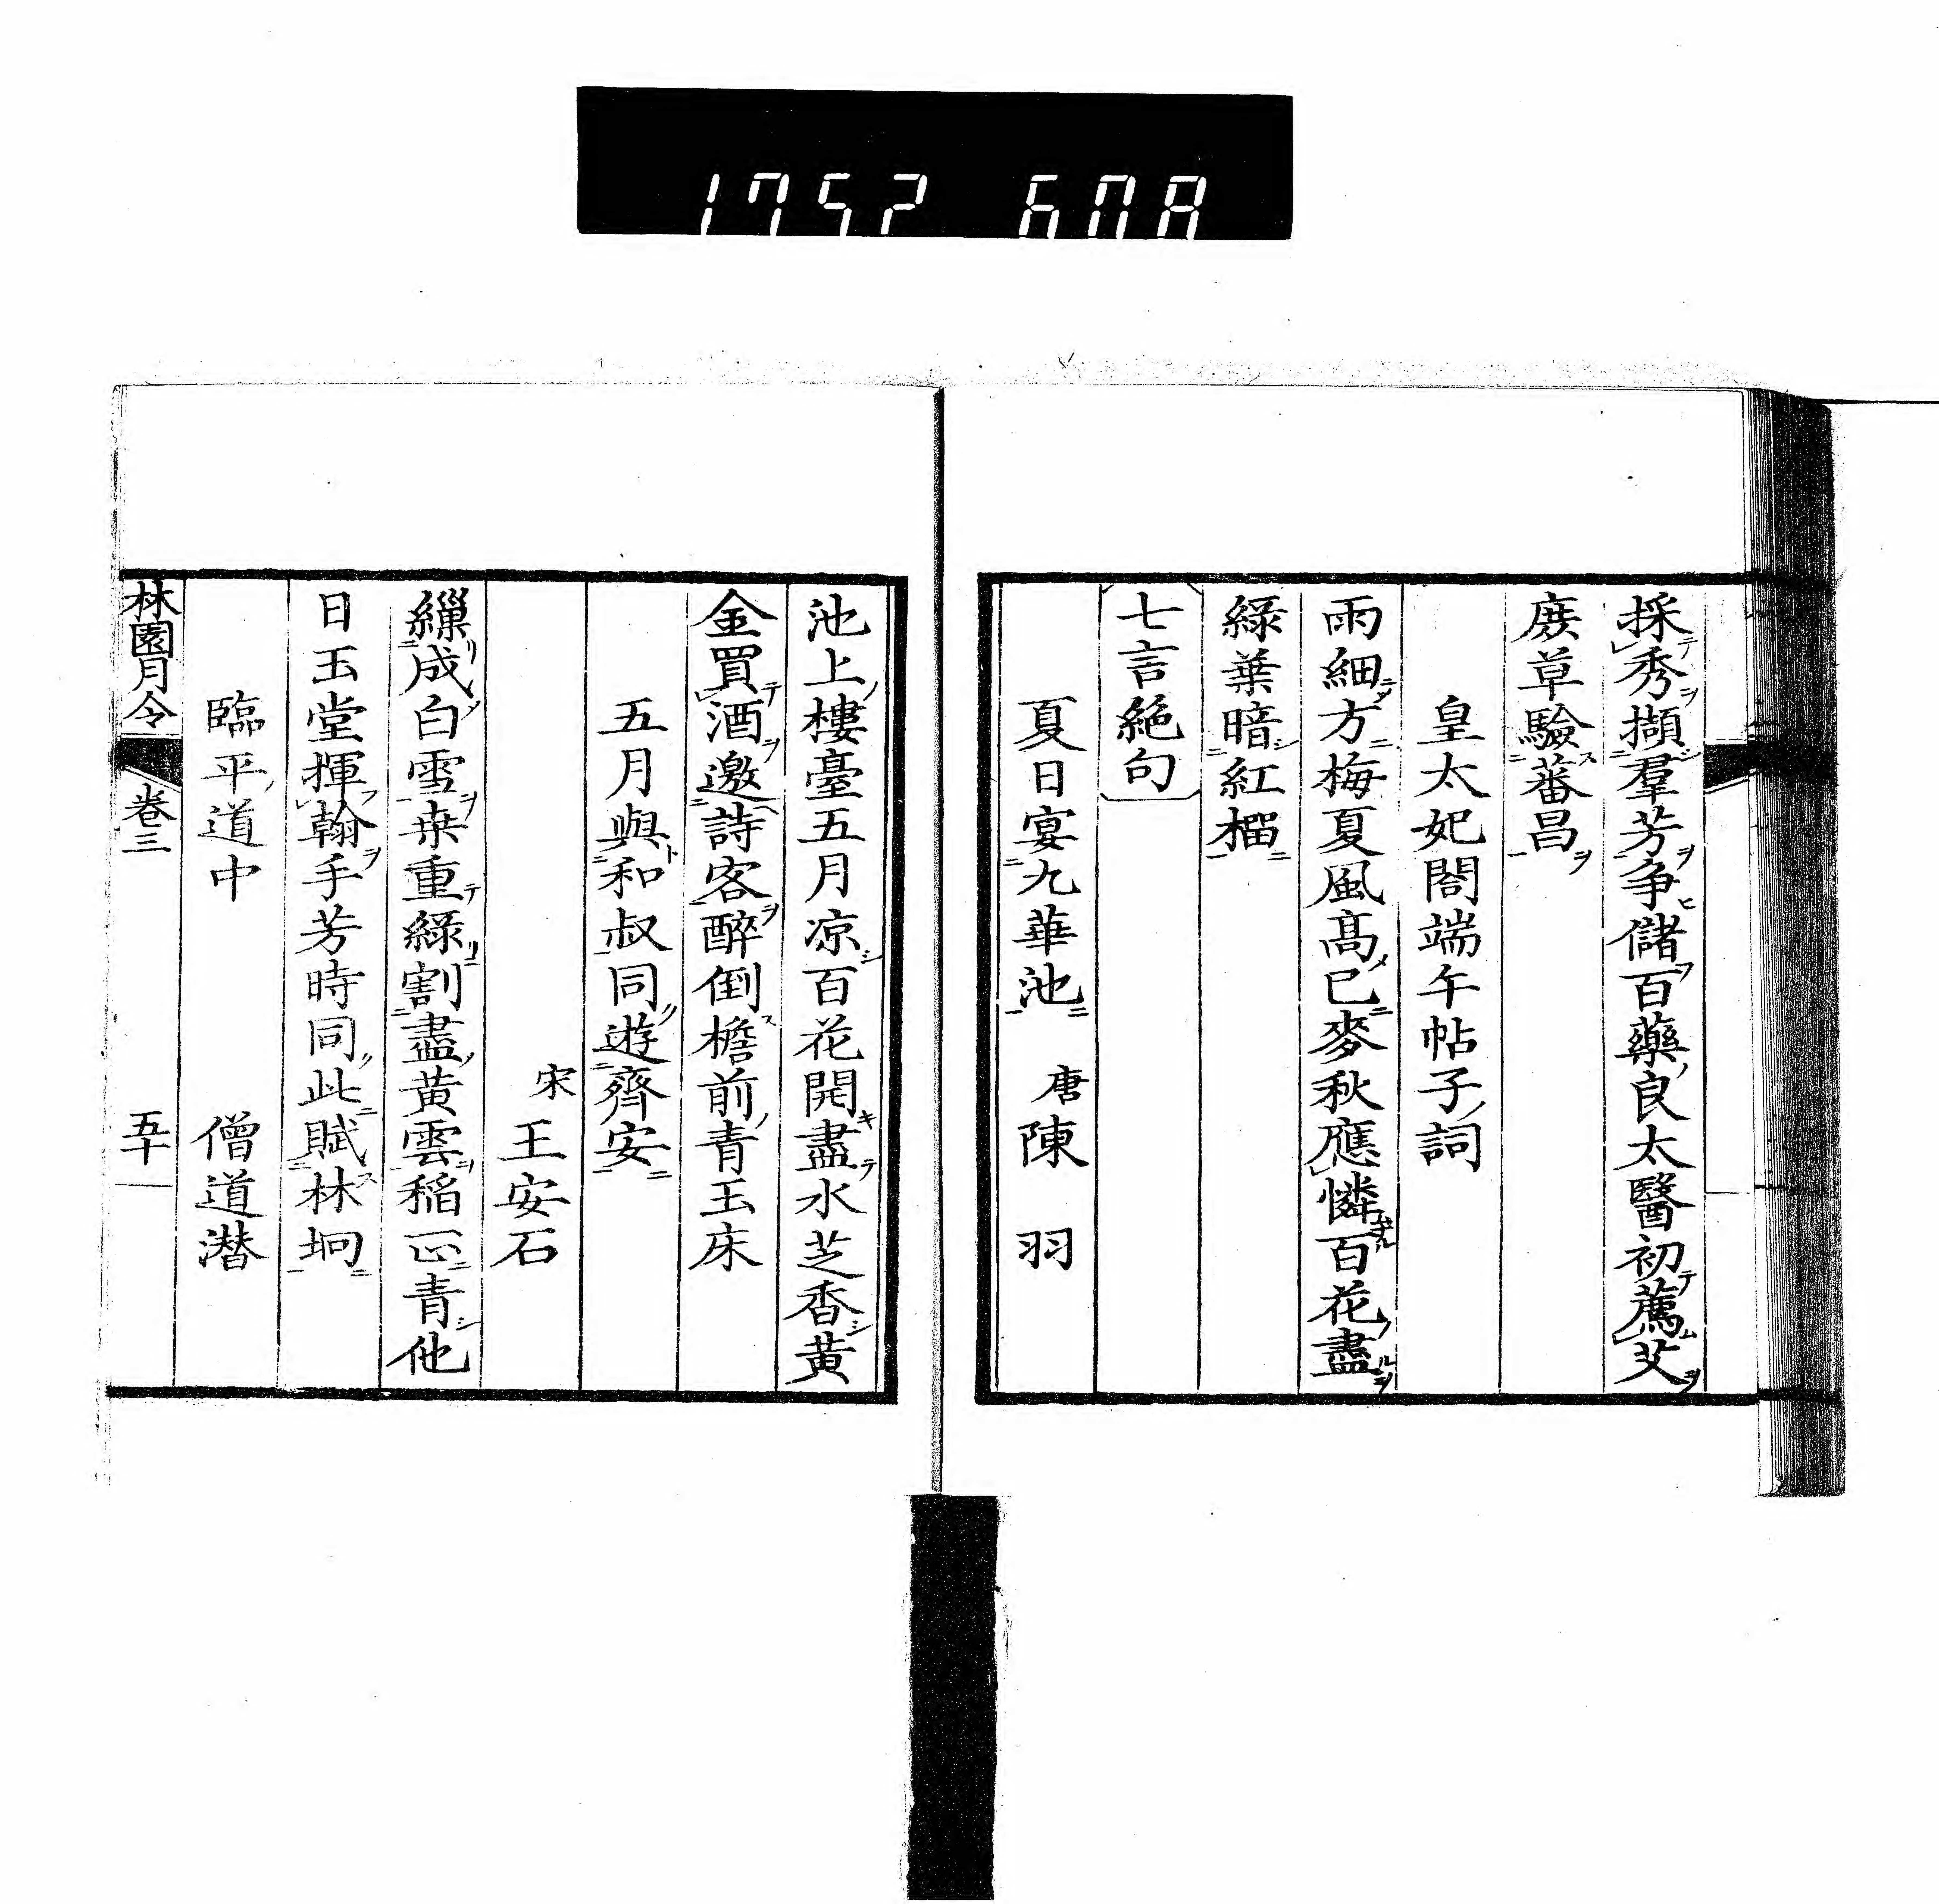 1752 608
採秀擷羣芳争儲百藥良太醫初薦艾
庶草驗蕃昌
皇太妃閤端午帖子詞
雨細方梅夏風髙已麥秋應憐百花盡
綠葉暗紅榴
七言絶句
夏日宴九華池 唐陳 羽
池上樓臺五月凉百花開盡水芝香黄
金買酒邀詩客醉倒檐前青玉床
五月與和叔同遊齊安
宋王安石
繅成白雪桒重綠割盡黄雲稲正青他
日玉堂揮翰手芳時同此賦林坰
臨平道中 僧道潜
林園月令 卷三 五十一